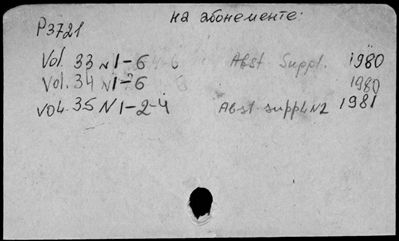 P3721 на абонементе:
Vol. 33 N 1-6 Abst Suppl. 1980
Vol. 34 N 1-6 1980
vol. 35 N 1-2-4 Abst suppl. N2 1981